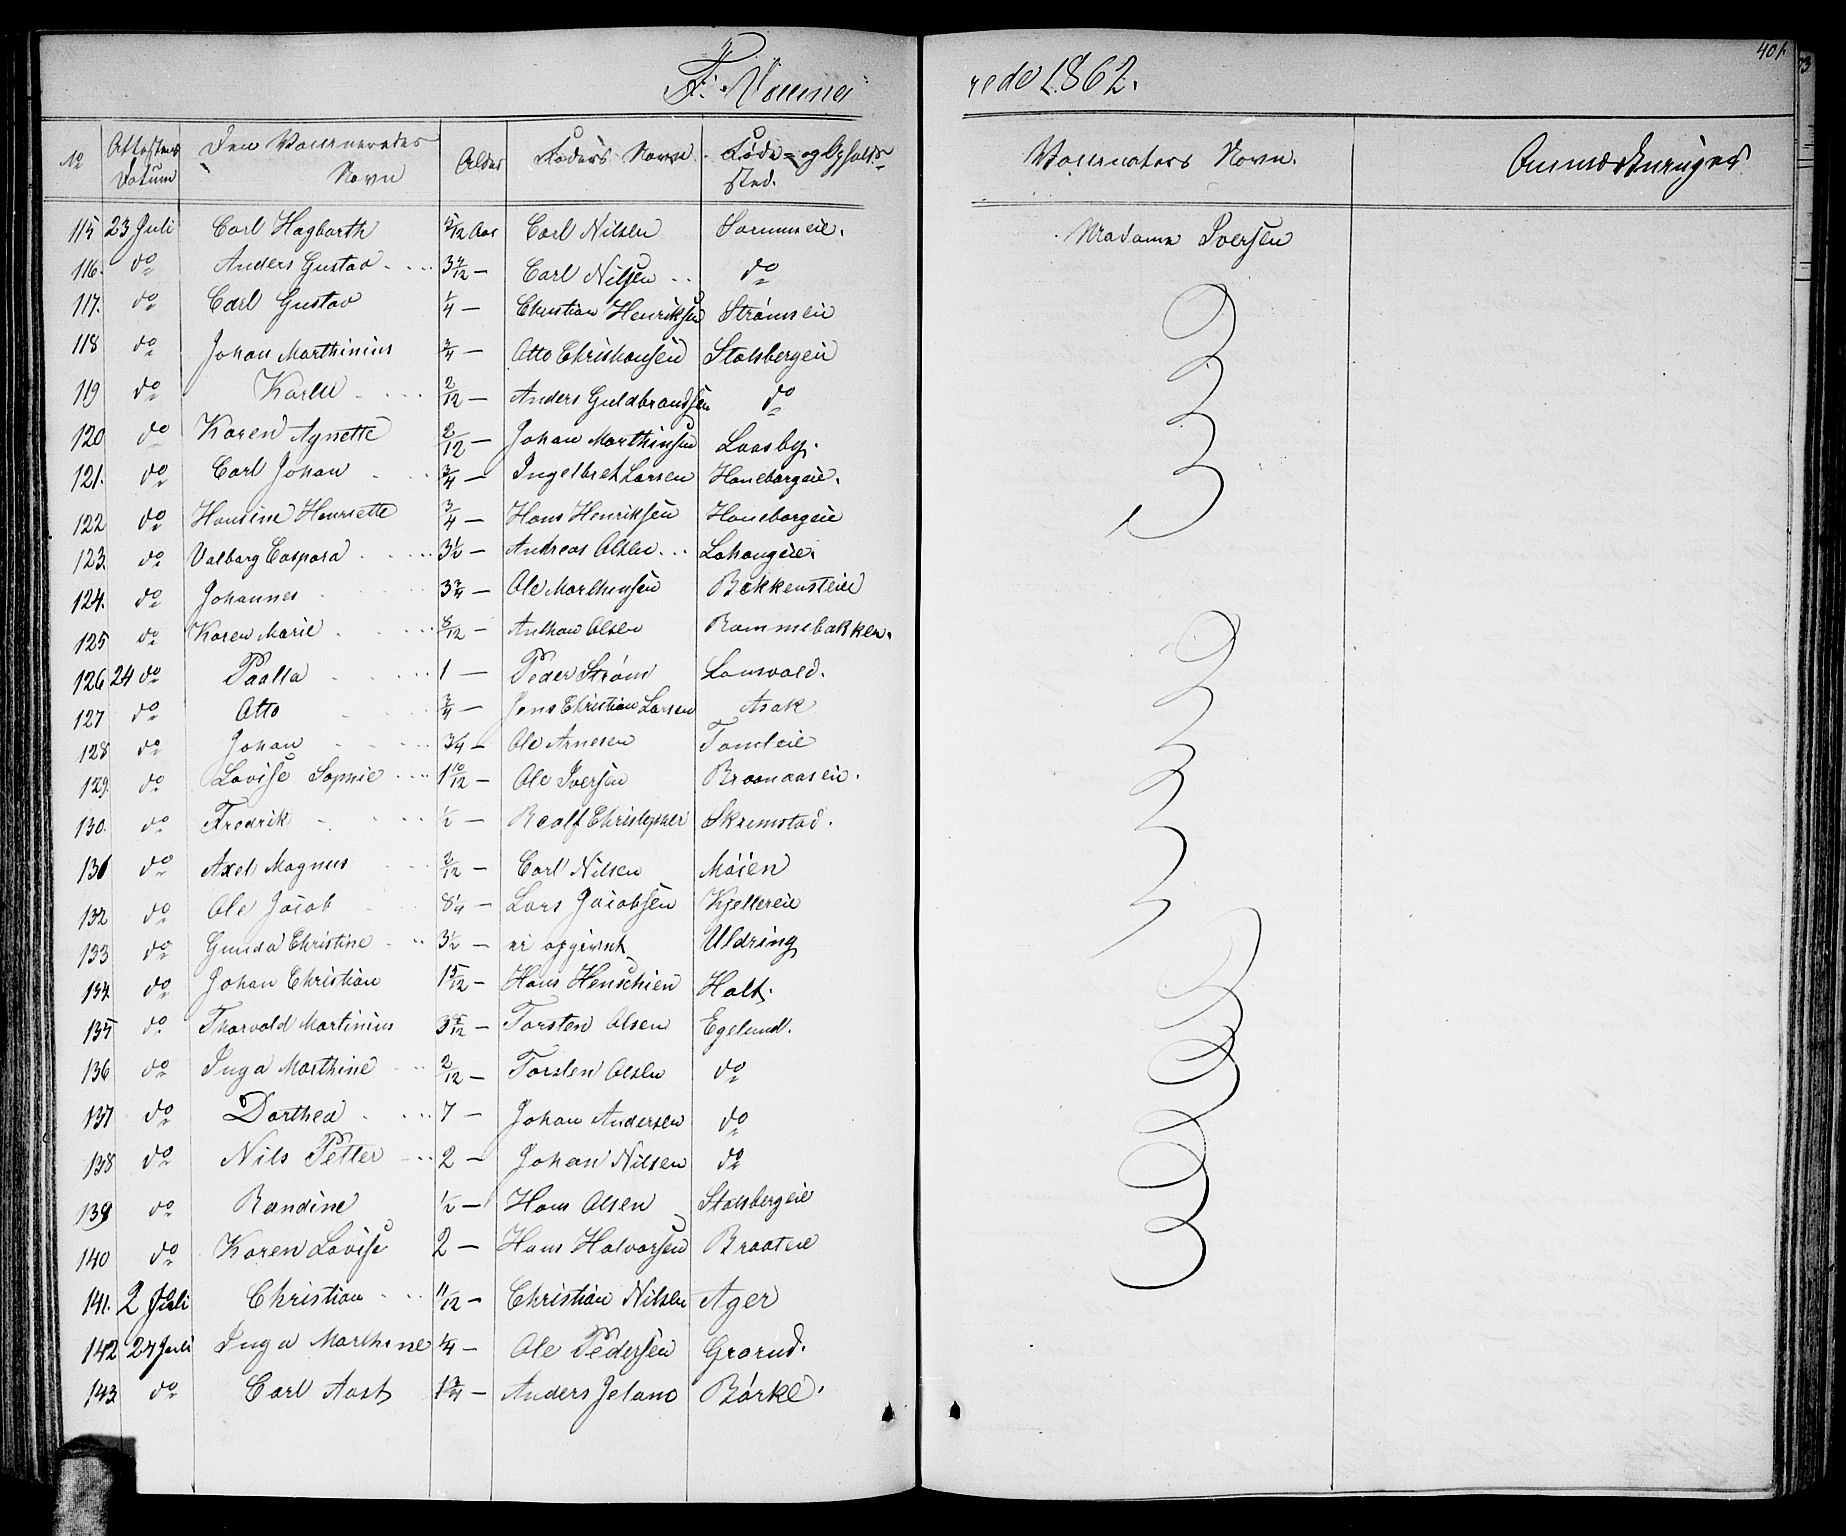 F. Vaccinerede 1862.
401.
No Attestens Datum Den Vaccineredes Navn Alder Faders Navn Føde- og Opholdssted. Vaccinators Navn. Anmærkninger
115 23 Juli Carl Hagbarth 5/12 Aar Carl Nilsen Madame Iversen
116. do Anders Gustav 3 4/12 — Carl Nilsen do
117. do Carl Gustav 1/4 — Christian Henriksen Strømseie
118 do Johan Marthinius 3/4 — Otto Christiansen Stolsbergeie
119 do 2/12 — Anders Guldbrandsen do
120 do Karen Agnette 2/12 — Johan Marthinsen Laasby.
121. do Carl Johan 3/4 — Ingelbret Larsen Haneborgeie.
122 do Hansine Henriette 3/4 — Hans Henriksen Haneborgeie
123. do Valborg Caspara 3 1/2 — Andreas Olsen
124. do Johannes 3 3/4 — Ole Marthinsen Bakkensteie
125 do Karen Marie 8/12 — Anthon Olsen Rammebakken.
126 24 do Paalla 1 — Peder Strøm
127 do Otto 3/4 — Jens Christian Larsen Asak
128 do Johan 3/4 — Ole Arnesen Tomteie
129. do Lovise Sophie 1 10/12 — Ole Iversen Braanaaseie.
130. do Fredrik 1/2 — Christopher Skrimstad.
131 do Axel Magnus 2/12 — Carl Nilsen Møien
132 do Ole Jacob 8 1/4 — Lars Jacobsen Kjellereie
133 do Gunda Christine 3 1/2 — ei opgivet Uldring
134 do Johan Christian 1 5/12 — Hans Henschien Holt.
135 do Thorvald Martinius 3 5/12 — Torsten Olsen Egelund.
136 do Inga Marthine 2/12 — Torsten Olsen do
137 do Dorthea 7 — Johan Andersen do
138 do Nils Petter 2 — Johan Nilsen do
139 do Randine 1/2 — Hans Olsen Stolsbergeie
140 do Karen Lovise 2 — Hans Halvorsen Braateie
141. 2 Juli Christian 11/12 — Christian Nilsen Ager
142 24 Juli Inga Marthine 1/4 — Ole Pedersen Grorud.
143 do Carl Aast 1 3/4 — Anders Børke.